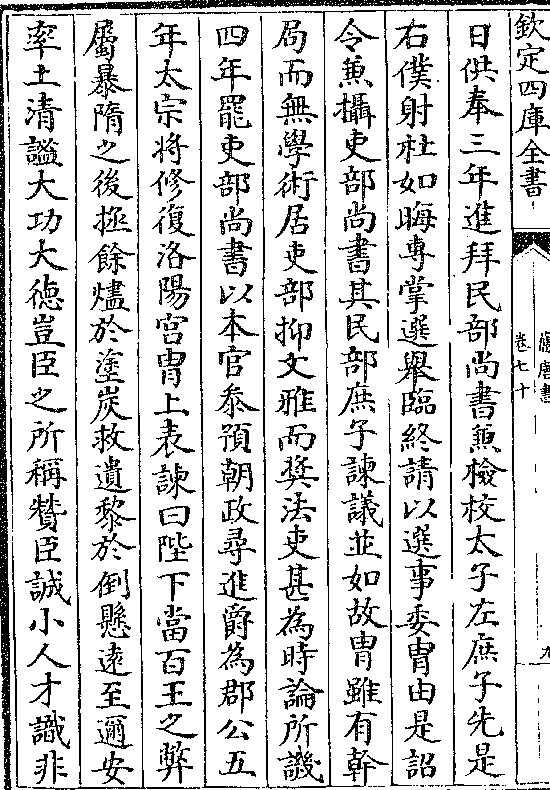 欽定四庫全書
舊唐書
卷七十
九
日供奉三年進拜民部尚書兼檢校太子左庶子先是
右僕射杜如晦專掌選舉臨終請以選事委胄由是詔
令兼攝吏部尚書其民部庶子諫議並如故胄雖有幹
局而無學術居吏部抑文雅而奬法吏甚為時論所譏
四年罷吏部尚書以本官叅預朝政尋進爵為郡公五
年太宗將修復洛陽宫胄上表諫曰陛下當百王之弊
屬暴隋之後拯餘燼於塗炭救遺黎於倒懸遠至邇安
率土清謐大功大德豈臣之所稱贊臣誠小人才識非